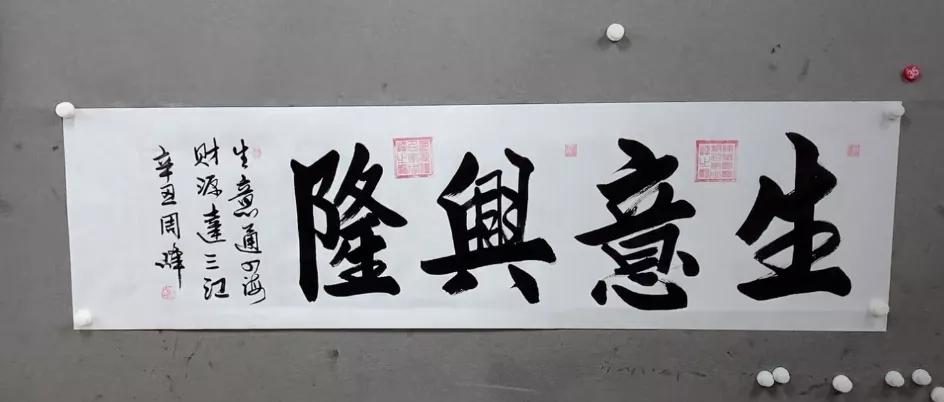 生意興隆
生意通四海
财源達三江
辛丑周峰